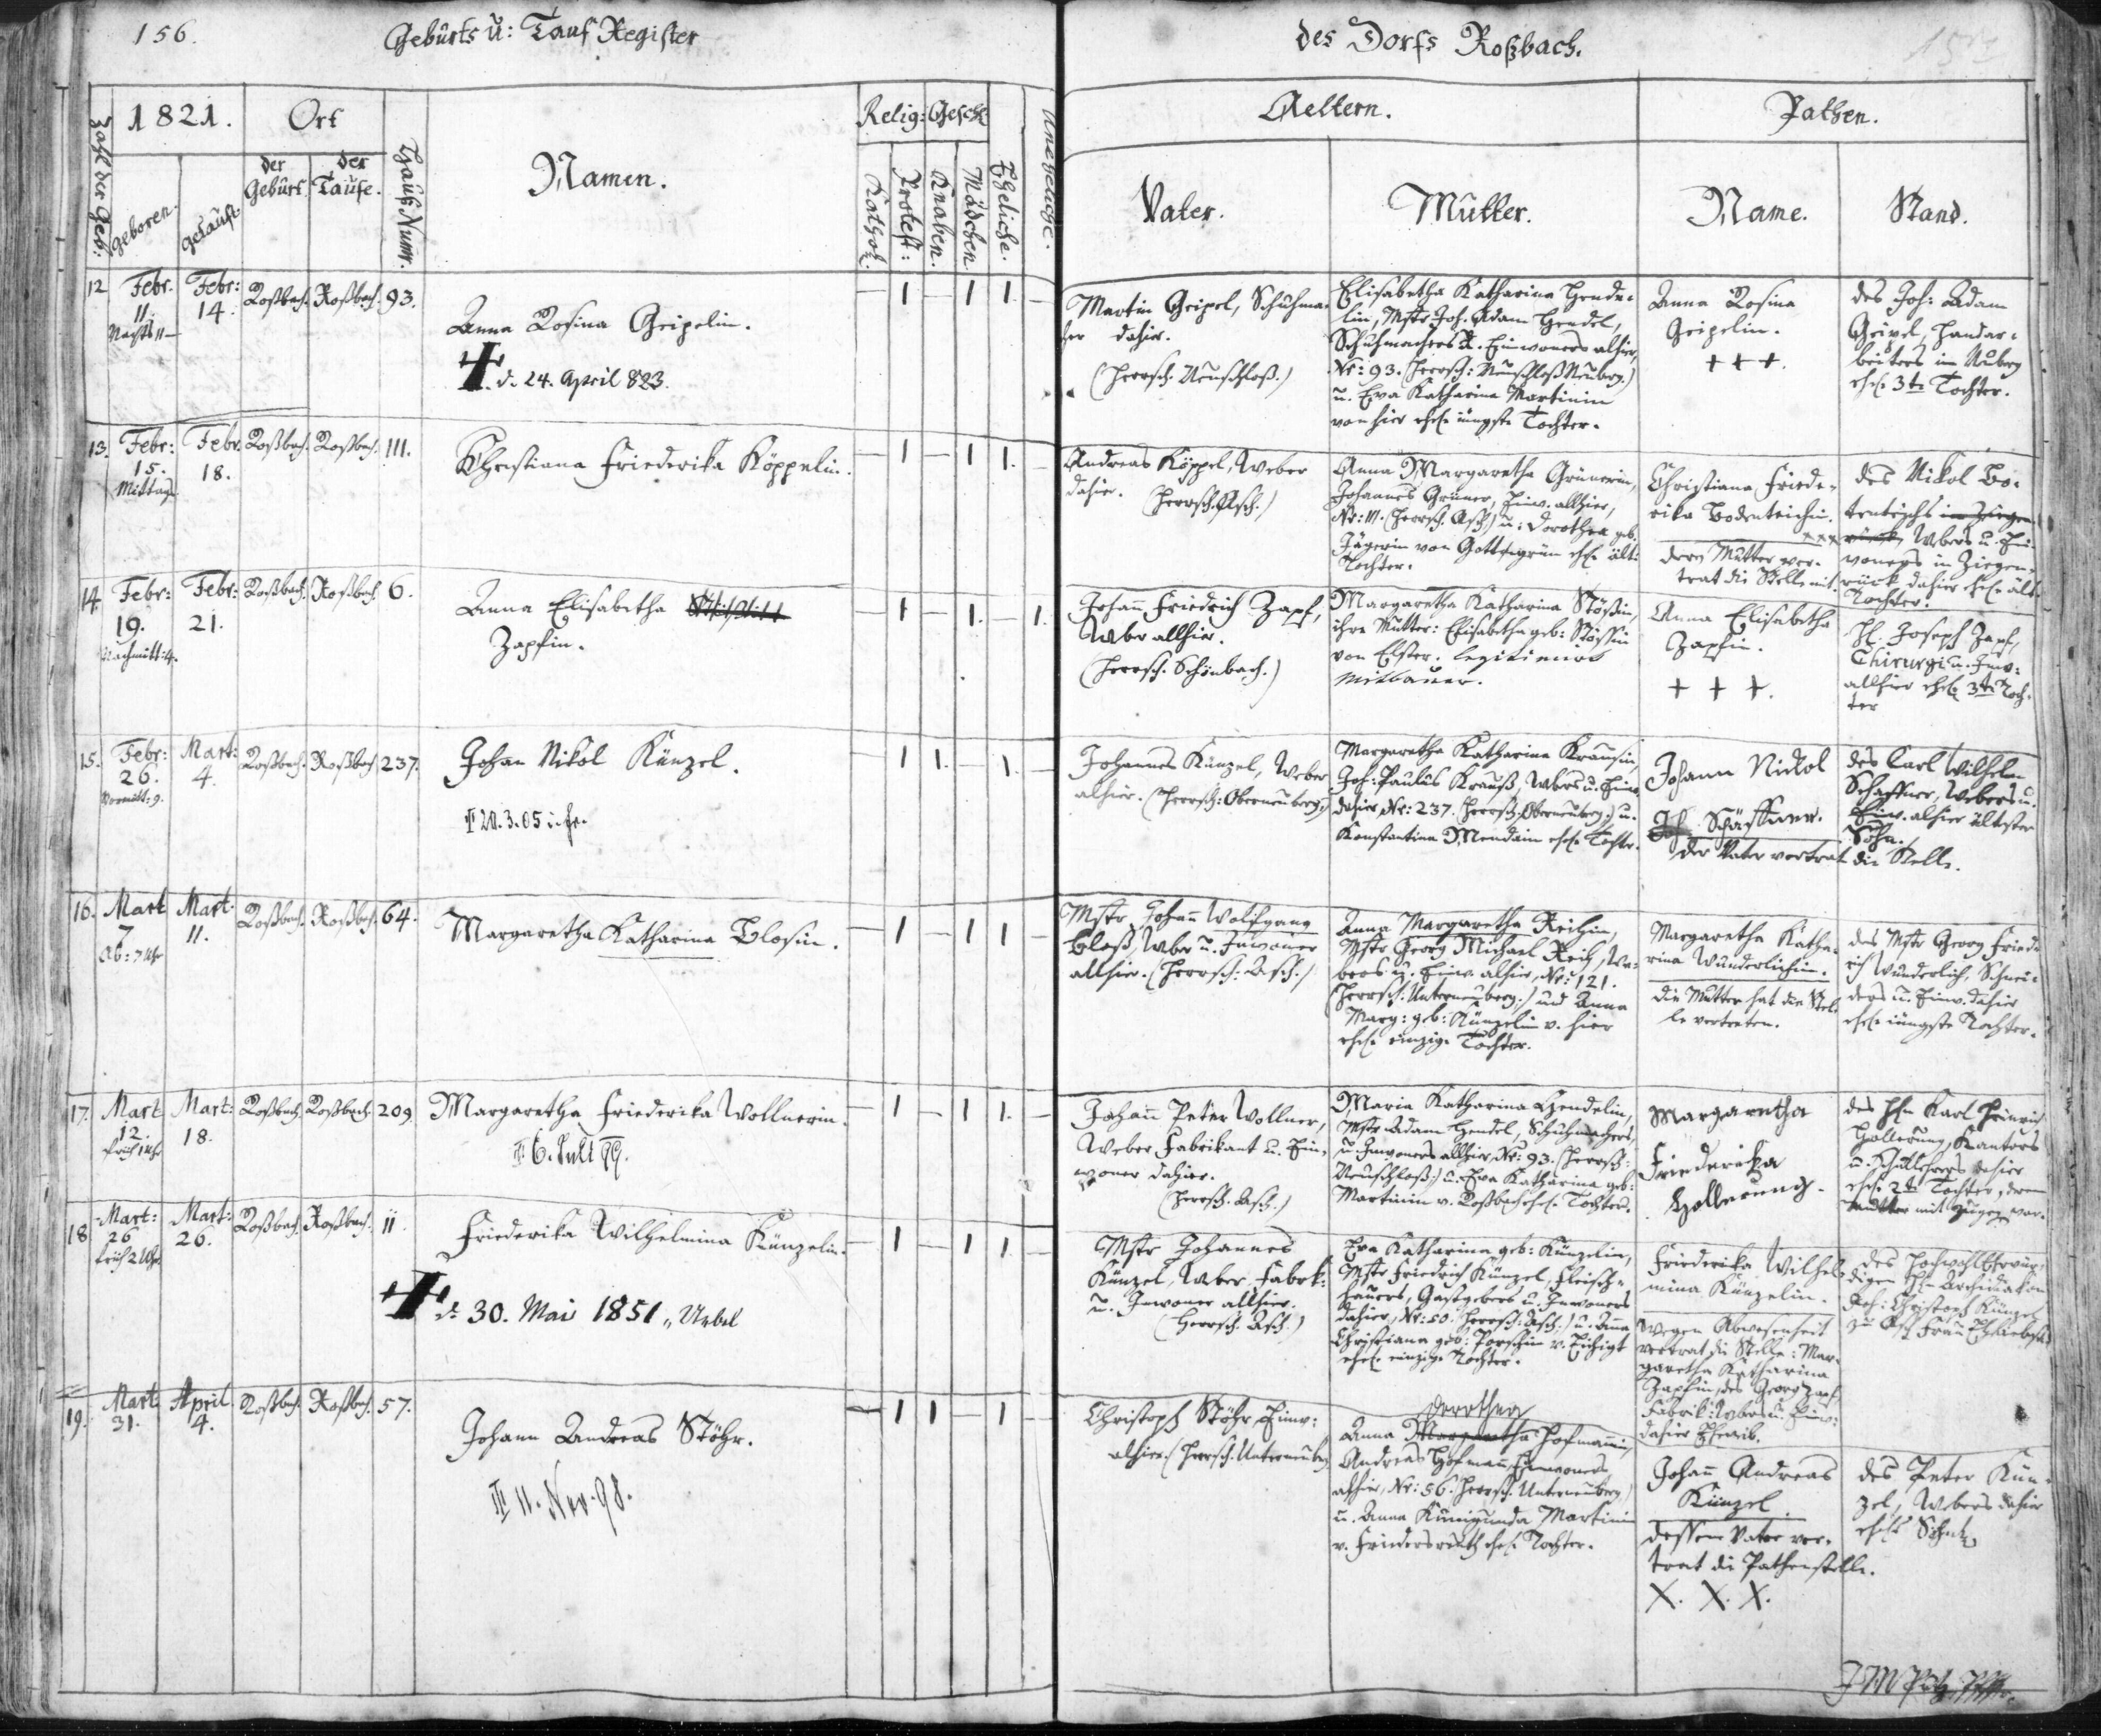 156.
Geburts u: Tauf Register
des Dorfs Roßbach.
Zahl der Geb:
1821.
geboren.
getauft
Ort
der Geburt
der Taufe.
Hauß Numr.
Namen.
Relig:
Kathol.
Protest:
Geschl
Knaben.
Mädchen
Eheliche.
Uneheliche.
Aeltern.
Vater.
Mutter.
Pathen.
Name.
Stand.
12
Febr.
11.
Nachts 11
Febr:
14.
Roßbach.
Roßbach.
93.
Anna Rosina Geipelin.
d. 24. April 823.
1 1 1
Martin Geipel, Schuhma-
cher dahier.
(Herrsch. Neuschloß.)
Elisabetha Katharina Hende-
lin, Mstr Joh. Adam Hendel,
Schuhmachers u. Einwoners alhier,
Nr: 93. (Herrsch: Neuschloß Neuberg.)
u. Eva Katharina Martinin
von hier ehel. jüngste Tochter.
Anna Rosina
Geipelin.
+++.
des Joh: Adam
Geipel, Handar-
beiters in Neuberg
ehel. 3te Tochter.
13.
Febr:
15.
Mittag
Febr.
18.
Roßbach.
Roßbach.
111.
Christiana Friederika Köppelin.
1 1 1.
Andreas Köppel, Weber
dahier. (Herrsch. Asch.)
Anna Margaretha Grünerin,
Johannes Grüner, Einw. allhier,
Nr: 111. (Herrsch. Asch.) u: Dorothea geb.
Jägerin von Gottsgrün ehel. ält:
Tochter.
Christiana Friede-
rika Bodenteichin.
xxx
deren Mutter ver-
trat die Stelle mit.
des Nikol Bo-
tenteichs
Webers u. Ein-
woners in Ziegen-
rück dahier ehel. ält.
Tochter.
14.
Febr:
19.
Nachmitt: 4.
Febr:
21.
Roßbach.
Roßbach.
6.
Anna Elisabetha
Zapfin.
1 1. 1.
Johann Friedrich Zapf,
Weber allhier.
(Herrsch. Schönbach.)
Margaretha Katharina Stößin,
ihre Mutter: Elisabetha geb: Stößin
von Elster. legitimirt
Mitbauer.
Anna Elisabetha
Zapfin.
+ + +.
H. Joseph Zapf,
Chirurgi u. Inw:
allhier ehel. 3te Toch-
ter
15.
Febr:
26.
Vormitt: 9.
Mart:
4.
Roßbach.
Roßbach
237.
Johan Nikol Künzel.
20.3.05
1 1. 1.
Johannes Künzel, Weber
alhier. (Herrsch: Oberneuberg.)
Margaretha Katharina Kraußin,
Joh: Paulus Krauß, Webers u. Einw.
dahier, Nr: 237. (Herrsch. Oberneuberg.) u.
Konstantina Mendain ehel. Tochter.
Johann Nickol
Schäffner.
der Vater vertrat die Stelle.
des Carl Wilhelm
Schaffner, Webers u.
Einw. alhier ältester
Sohn.
16.
Mart
7
Ab: 7 Uhr
Mart.
11.
Roßbach.
Roßbach.
64.
Margaretha Katharina Bloßin.
1 1 1
Mstr Johann Wolfgang
Bloß, Weber u. Inwoner
allhier. (Herrsch: Asch.)
Anna Margaretha Reichin,
Mstr Georg Michael Reich, We-
bers u. Einw. alhier, Nr: 121.
(Herrsch. Unterneuberg.) und Anna
Marg: geb: Künzelin v. hier
ehel. einzige Tochter.
Margaretha Katha-
rina Wunderlichin.
die Mutter hat die Stel-
le vertreten.
des Mstr Georg Fried-
rich Wunderlich, Schnei-
ders u. Einw. dahier
ehel. jüngste Tochter.
17.
Mart
12.
früh 1 Uhr
Mart:
18.
Roßbach
Roßbach.
209
Margaretha Friederika Wollnerin.
6. Juli 99.
1 1 1.
Johann Peter Wollner,
Weber Fabrikant u. Ein-
woner dahier.
(Herrsch. Asch.)
Maria Katharina Hendelin,
Mstr Adam Hendel, Schuhmachers,
u. Inwoners allhier, Nr: 93. (Herrsch:
Neuschloß) u. Eva Katharina geb:
Martinin v. Roßbach ehel. Tochter.
Margaretha
Friedericka
Hollerung.
des H. Karl Heinrich
Hollerung, Kantors
u. Schullehrers dahier
ehel. 2te Tochter, deren
Mutter mit zugegen war.
18
Mart:
26
früh 2 Uhr.
Mart:
26.
Roßbach.
Roßbach.
11.
Friederika Wilhelmina Künzelin.
d. 30. Mai 1851
1 1 1
Mstr Johannes
Künzel, Weber, Fabrk:
u. Inwoner allhier.
(Herrsch. Asch.)
Eva Katharina geb: Künzelin,
Mstr Friedrich Künzel, Fleisch-
hauers, Gastgebers u. Inwoners
dahier, Nr: 50. (Herrsch: Asch.) u. Anna
Christiana geb: Porschin v. Eichigt
ehel. einzige Tochter.
Friederika Wilhel-
mina Künzelin.
wegen Abwesenheit
vertrat die Stelle: Mar-
garetha Katharina
Zapfin, des Georg Zapf,
Fabrik: Webers u. Einw:
dahier Eheweib.
des Hochwohlehrwür-
digen H. Archidiakon
Joh: Christoph Künzel
zu Asch Frau
19.
Mart
31.
April
4.
Roßbach.
Roßbach.
57.
Johann Andreas Stöhr.
11. Nov. 98.
1 1 1
Christoph Stöhr, Einw:
alhier. (Herrsch. Unterneuberg
Dorothea
Anna Margaretha Hofmannin,
Andreas Hofmann, Einwoners
alhier, Nr: 56. (Herrsch. Unterneuberg)
u. Anna Kunigunda Martinin
v. Friedersreuth ehel. Tochter.
Johann Andreas
Künzel
dessen Vater ver-
trat die Pathenstelle.
X. X. X.
des Peter Kün-
zel, Webers dahier
ehel. Sohn